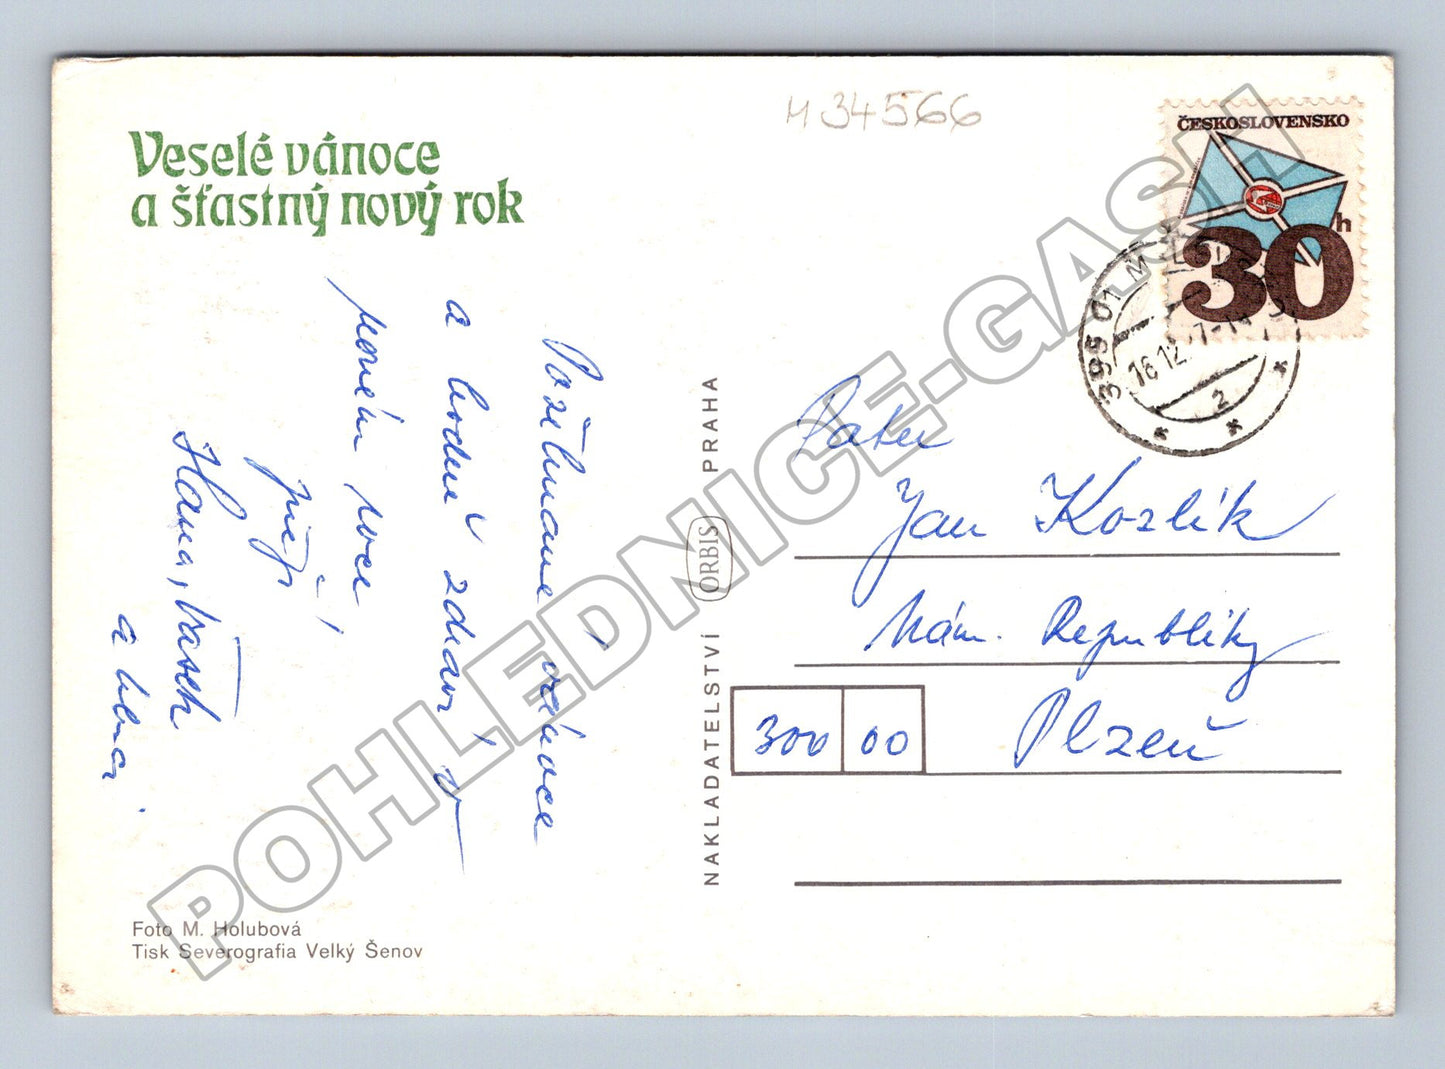 M 34566
Veselé vánoce
a šťastný nový rok
ČESKOSLOVENSKO
30 h
395 01
16.12.
2
Požehnané vánoce
a hodně zdraví v
novém roce
přejí
Hana, Vašek
a
Pater
Jan Kozlík
Nám. Republiky
Plzeň
300 00
NAKLADATELSTVÍ ORBIS PRAHA
Foto M. Holubová
Tisk Severografia Velký Šenov
POHLEDNICE-GASH